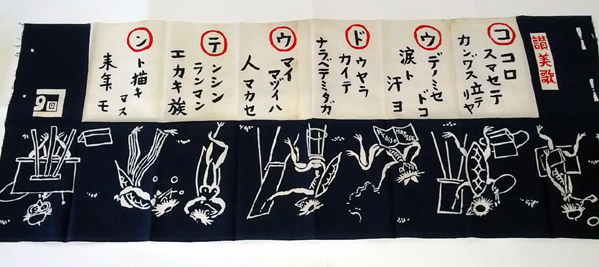 讃美歌
コ
コロ
スマセテ
カンヴス立テ
リヤ
ウ
デノミセ
ドコ
涙ト汗ヨ
ド
ウヤラ
カイテ
ナラベテミタガ
ウ
マイ
マヅイハ
人マカセ
テ
ンシン
ランマン
エカキ族
ン
ント描キ
マス
来年モ
9回